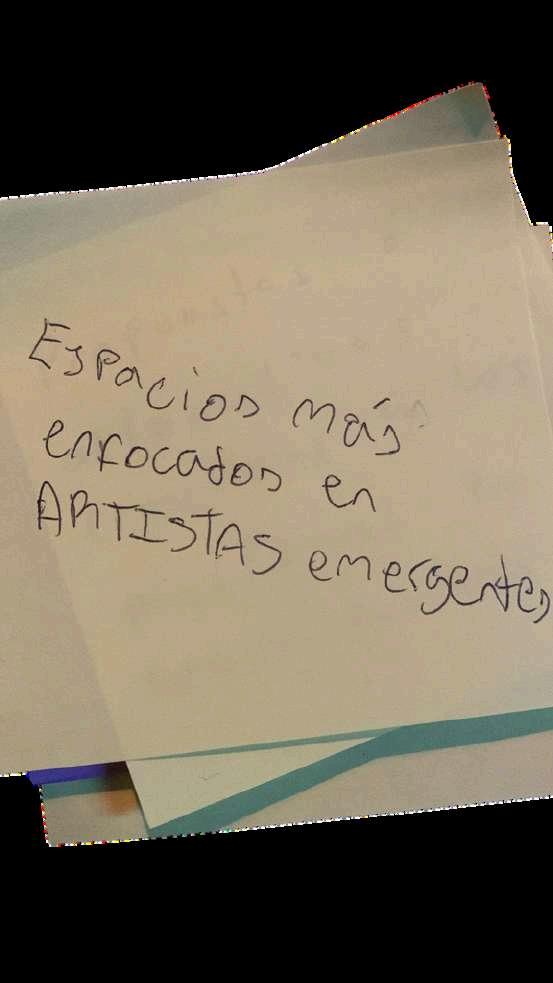 Espacios más
enfocados en
ARTISTAS emergentes